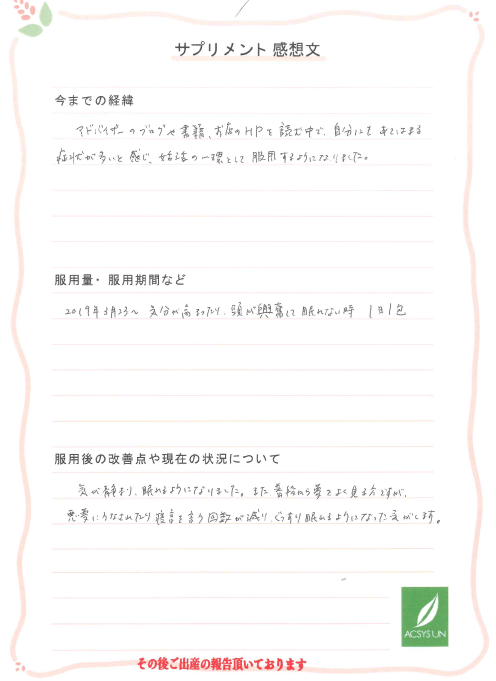 サプリメント 感想文
今までの経緯
アドバイザーのブログや書籍、お店のHPを読む中で、自分にもあてはまる
症状が多いと感じ、妊活の一環として服用するようになりました。
服用量・服用期間など
2019年3月23〜 気分が高まったり、頭が興奮して眠れない時 1日1包
服用後の改善点や現在の状況について
気が静まり、眠れるようになりました。また普段から夢をよく見る方ですが、
悪夢にうなされたり寝言を言う回数が減り、ぐっすり眠れるようになった気がします。
ACSYSUN
その後ご出産の報告頂いております